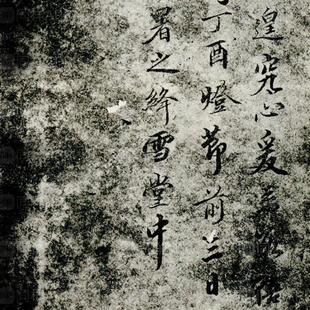 遑究心爰
丁酉燈節前三日
署之絳雪堂中